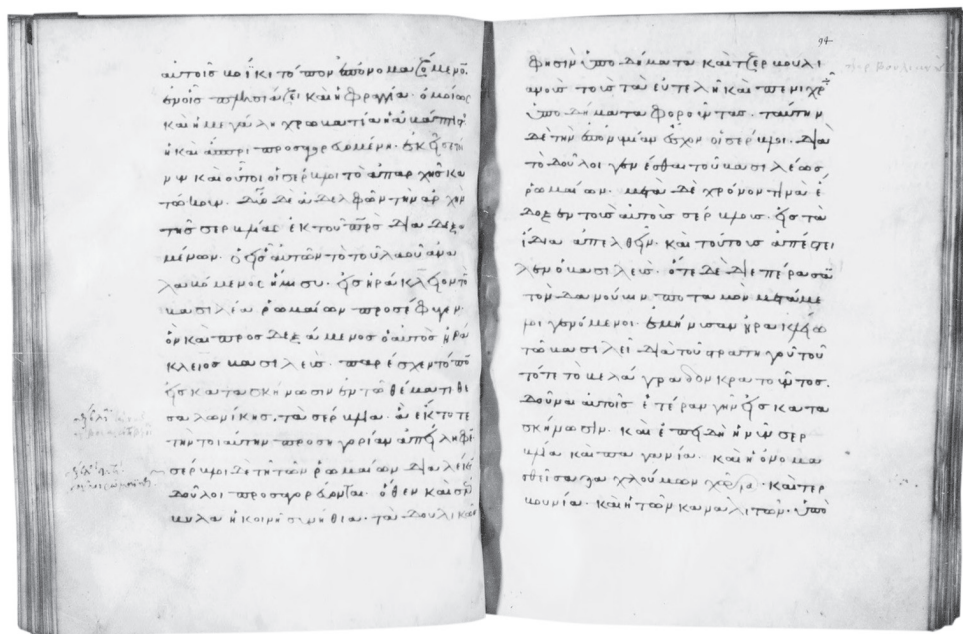 αὐτοῖς βοΐκι τόπον ἐπονομαζόμενον·
ἐν οἷς πλησιάζει καὶ ἡ φραγγία· ὁμοίως
καὶ ἡ μεγάλη χρωβατία ἡ ἀβάπτιστος
ἡ καὶ ἄσπρη προσαγορευομένη· ἐκεῖσε τοί
νυν καὶ οὗτοι οἱ σέρβλοι τὸ ἀπαρχῆς κα
τώκουν. δύο δὲ ἀδελφῶν τὴν ἀρχὴν
τῆς σερβλίας ἐκ τοῦ πρς διαδεξα
μένων· ὁ εἷς αὐτῶν τὸ τοῦ λαοῦ ἀνα
λαβόμενος ἥμισυ· εἰς ἡράκλειον τὸν
βασιλέα ρωμαίων προσέφυγεν·
ὃν καὶ προσδεξάμενος ὁ αὐτὸς ἡρά
κλειος βασιλεύς· παρέσχεν τόπον
εἰς κατασκήνωσιν ἐν τῶ θέματι θε
σαλωνίκης. τὰ σέρβλια· ἃ ἔκτοτε
τὴν τοιαύτην προσηγορίαν ἀπείληφεν
σέρβλοι δὲ τῆ τῶν ρωμαίων διαλέκτω
δοῦλοι προσαγορεύονται· ὅθεν καὶ σέρ
βυλα ἡ κοινὴ συνήθεια· τὰ δουλικῶς
94
φησὶν ὑποδήματα καὶ τζερβουλι
ανοὺς τοὺς τὰ εὐτελῆ καὶ πενιχρὰ
ὑποδήματα φοροῦντας. ταύτην
δὲ τὴν ἐπονυμίαν ἔσχον οἱ σέρβλοι· διὰ
τὸ δοῦλοι γενέσθαι τοῦ βασιλέως
ρωμαίων. μετὰ δὲ χρόνον τινὰ ἔ
δοξεν τοὺς αὐτοὺς σέρβλους· εἰς τὰ
ἴδια ἀπελθεῖν· καὶ τούτους ἀπέστει
λεν ὁ βασιλεύς· ὅτε δὲ διεπέρασαν
τὸν δανούβιν ποταμὸν μετάμε
λοι γενόμενοι· ἐμήνυσαν ἡρακλείω
τῶ βασιλεῖ· διὰ τοῦ στρατηγοῦ τοῦ
τότε τὸ βελάγραδον κρατοῦντος.
δοῦναι αὐτοὺς ἑτέραν γῆν εἰς κατα
σκήνωσιν. καὶ ἐπειδὴ ἡ νῦν σερ
βλία καὶ παγανία· καὶ ἡ ὀνομα
ζαχλούμων χώρα· καὶ τερ
βουνία· καὶ ἡ τῶν καναλιτῶν· ὑπὸ